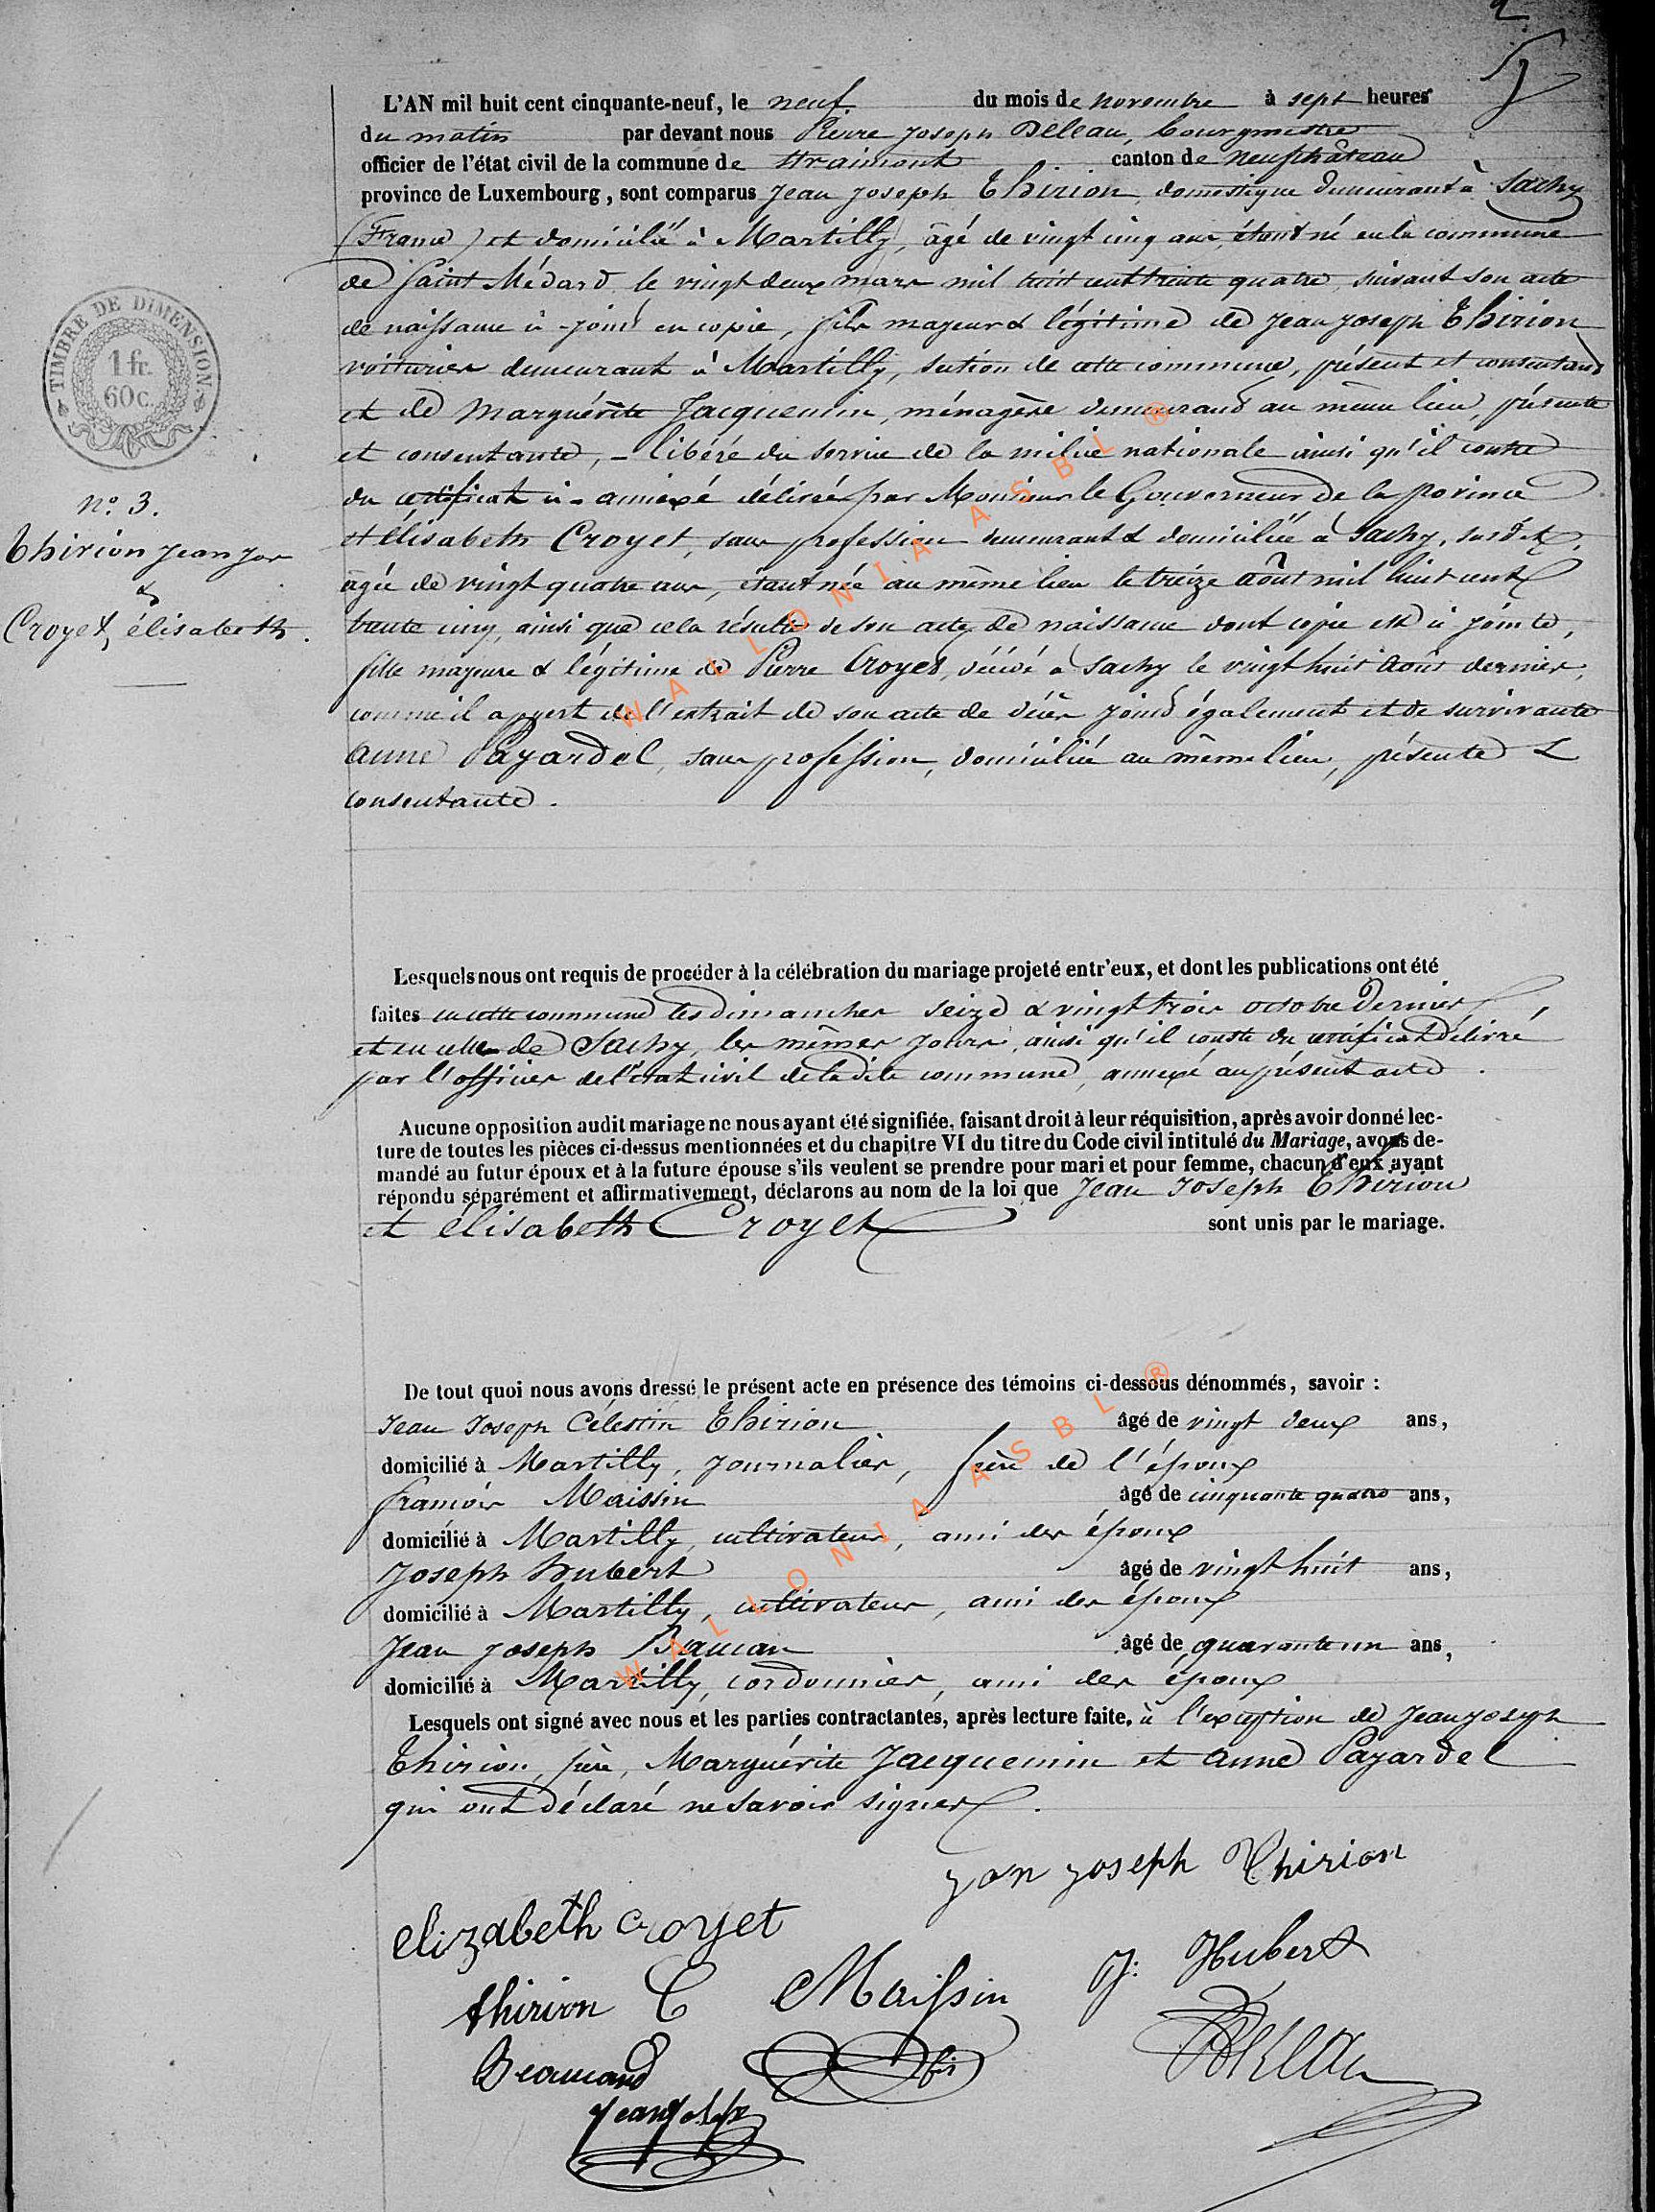 2
5
L'AN mil huit cent cinquante-neuf, le neuf du mois de novembre à sept heures
du matin par devant nous Pierre Joseph Deleau, bourgmestre
officier de l'état civil de la commune de Straimont canton de Neufchâteau
province de Luxembourg, sont comparus Jean Joseph Thirion, domestique demeurant à Sachy
(France) et domicilié à Martilly, âgé de vingt cinq ans, étant né en la commune
de Saint Médard le vingt deux mars mil huit cent trente quatre, suivant son acte
de naissance ci-joint en copie, fils majeur & légitime de Jean Joseph Thirion
voiturier demeurant à Martilly, section de cette commune, présent et consentant
et de Marguérite Jacquemin, ménagère demeurant au même lieu, présente
et consentante, - libéré du service de la milice nationale ainsi qu'il conste
du certificat ci-annexé délivré par Monsieur le Gouverneur de la province
et élisabeth Croyet, sans profession demeurant & domiciliée à Sachy, susdit,
âgée de vingt quatre ans, étant née au même lieu le treize août mil huit cent
trente cinq, ainsi que cela résulte de son acte de naissance dont copie est ci jointe,
fille majeure & légitime de Pierre Croyet, décédé à Sachy le vingt huit août dernier,
comme il appert de l'extrait de son acte de décès joint également et de survivante
anne Payardel, sans profession, domiciliée au même lieu, présente &
consentante.
TIMBRE DE DIMENSION
1 fr.
60 c.
n° 3.
Thirion Jean Jos
&
Croyet, élisabeth.
Lesquels nous ont requis de procéder à la célébration du mariage projeté entr'eux, et dont les publications ont été
faites en cette commune les dimanches seize & vingt trois octobre dernier,
et en celle de Sachy, les mêmes jours, ainsi qu'il conste du certificat délivré
par l'officier de l'état civil de ladite commune, annexé au présent acte.
Aucune opposition audit mariage ne nous ayant été signifiée, faisant droit à leur réquisition, après avoir donné lec-
ture de toutes les pièces ci-dessus mentionnées et du chapitre VI du titre du Code civil intitulé du Mariage, avons de-
mandé au futur époux et à la future épouse s'ils veulent se prendre pour mari et pour femme, chacun d'eux ayant
répondu séparément et affirmativement, déclarons au nom de la loi que Jean Joseph Thirion
et élisabeth Croyet sont unis par le mariage.
De tout quoi nous avons dressé le présent acte en présence des témoins ci-dessous dénommés, savoir :
Jean Joseph Célestin Thirion âgé de vingt deux ans,
domicilié à Martilly, journalier, frère de l'époux
françois Maissin âgé de cinquante quatre ans,
domicilié à Martilly, cultivateur, ami des époux
Joseph Hubert âgé de vingt huit ans,
domicilié à Martilly, cultivateur, ami des époux
Jean Joseph Baucan âgé de quarante un ans,
domicilié à Martilly, cordonnier, ami des époux
Lesquels ont signé avec nous et les parties contractantes, après lecture faite, à l'exception de Jean Joseph
Thirion, père, Marguérite Jacquemin et anne Payardel
qui ont déclaré ne savoir signer.
Jan Joseph Thirion
elizabeth croyet
thirion C Maissin J: Hubert
Deleau
Jean Joseph
WALLONIA ASBL ®
WALLONIA ASBL ®